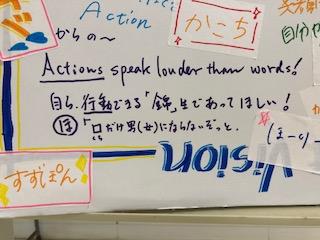 Action
かこち!
からの〜
自分
Actions speak louder than words!
自ら、行動できる「錦」生であってほしい!
ほ「口だけ男(女)にならないぞっと。
(ま-し)
すずぽん
Vision